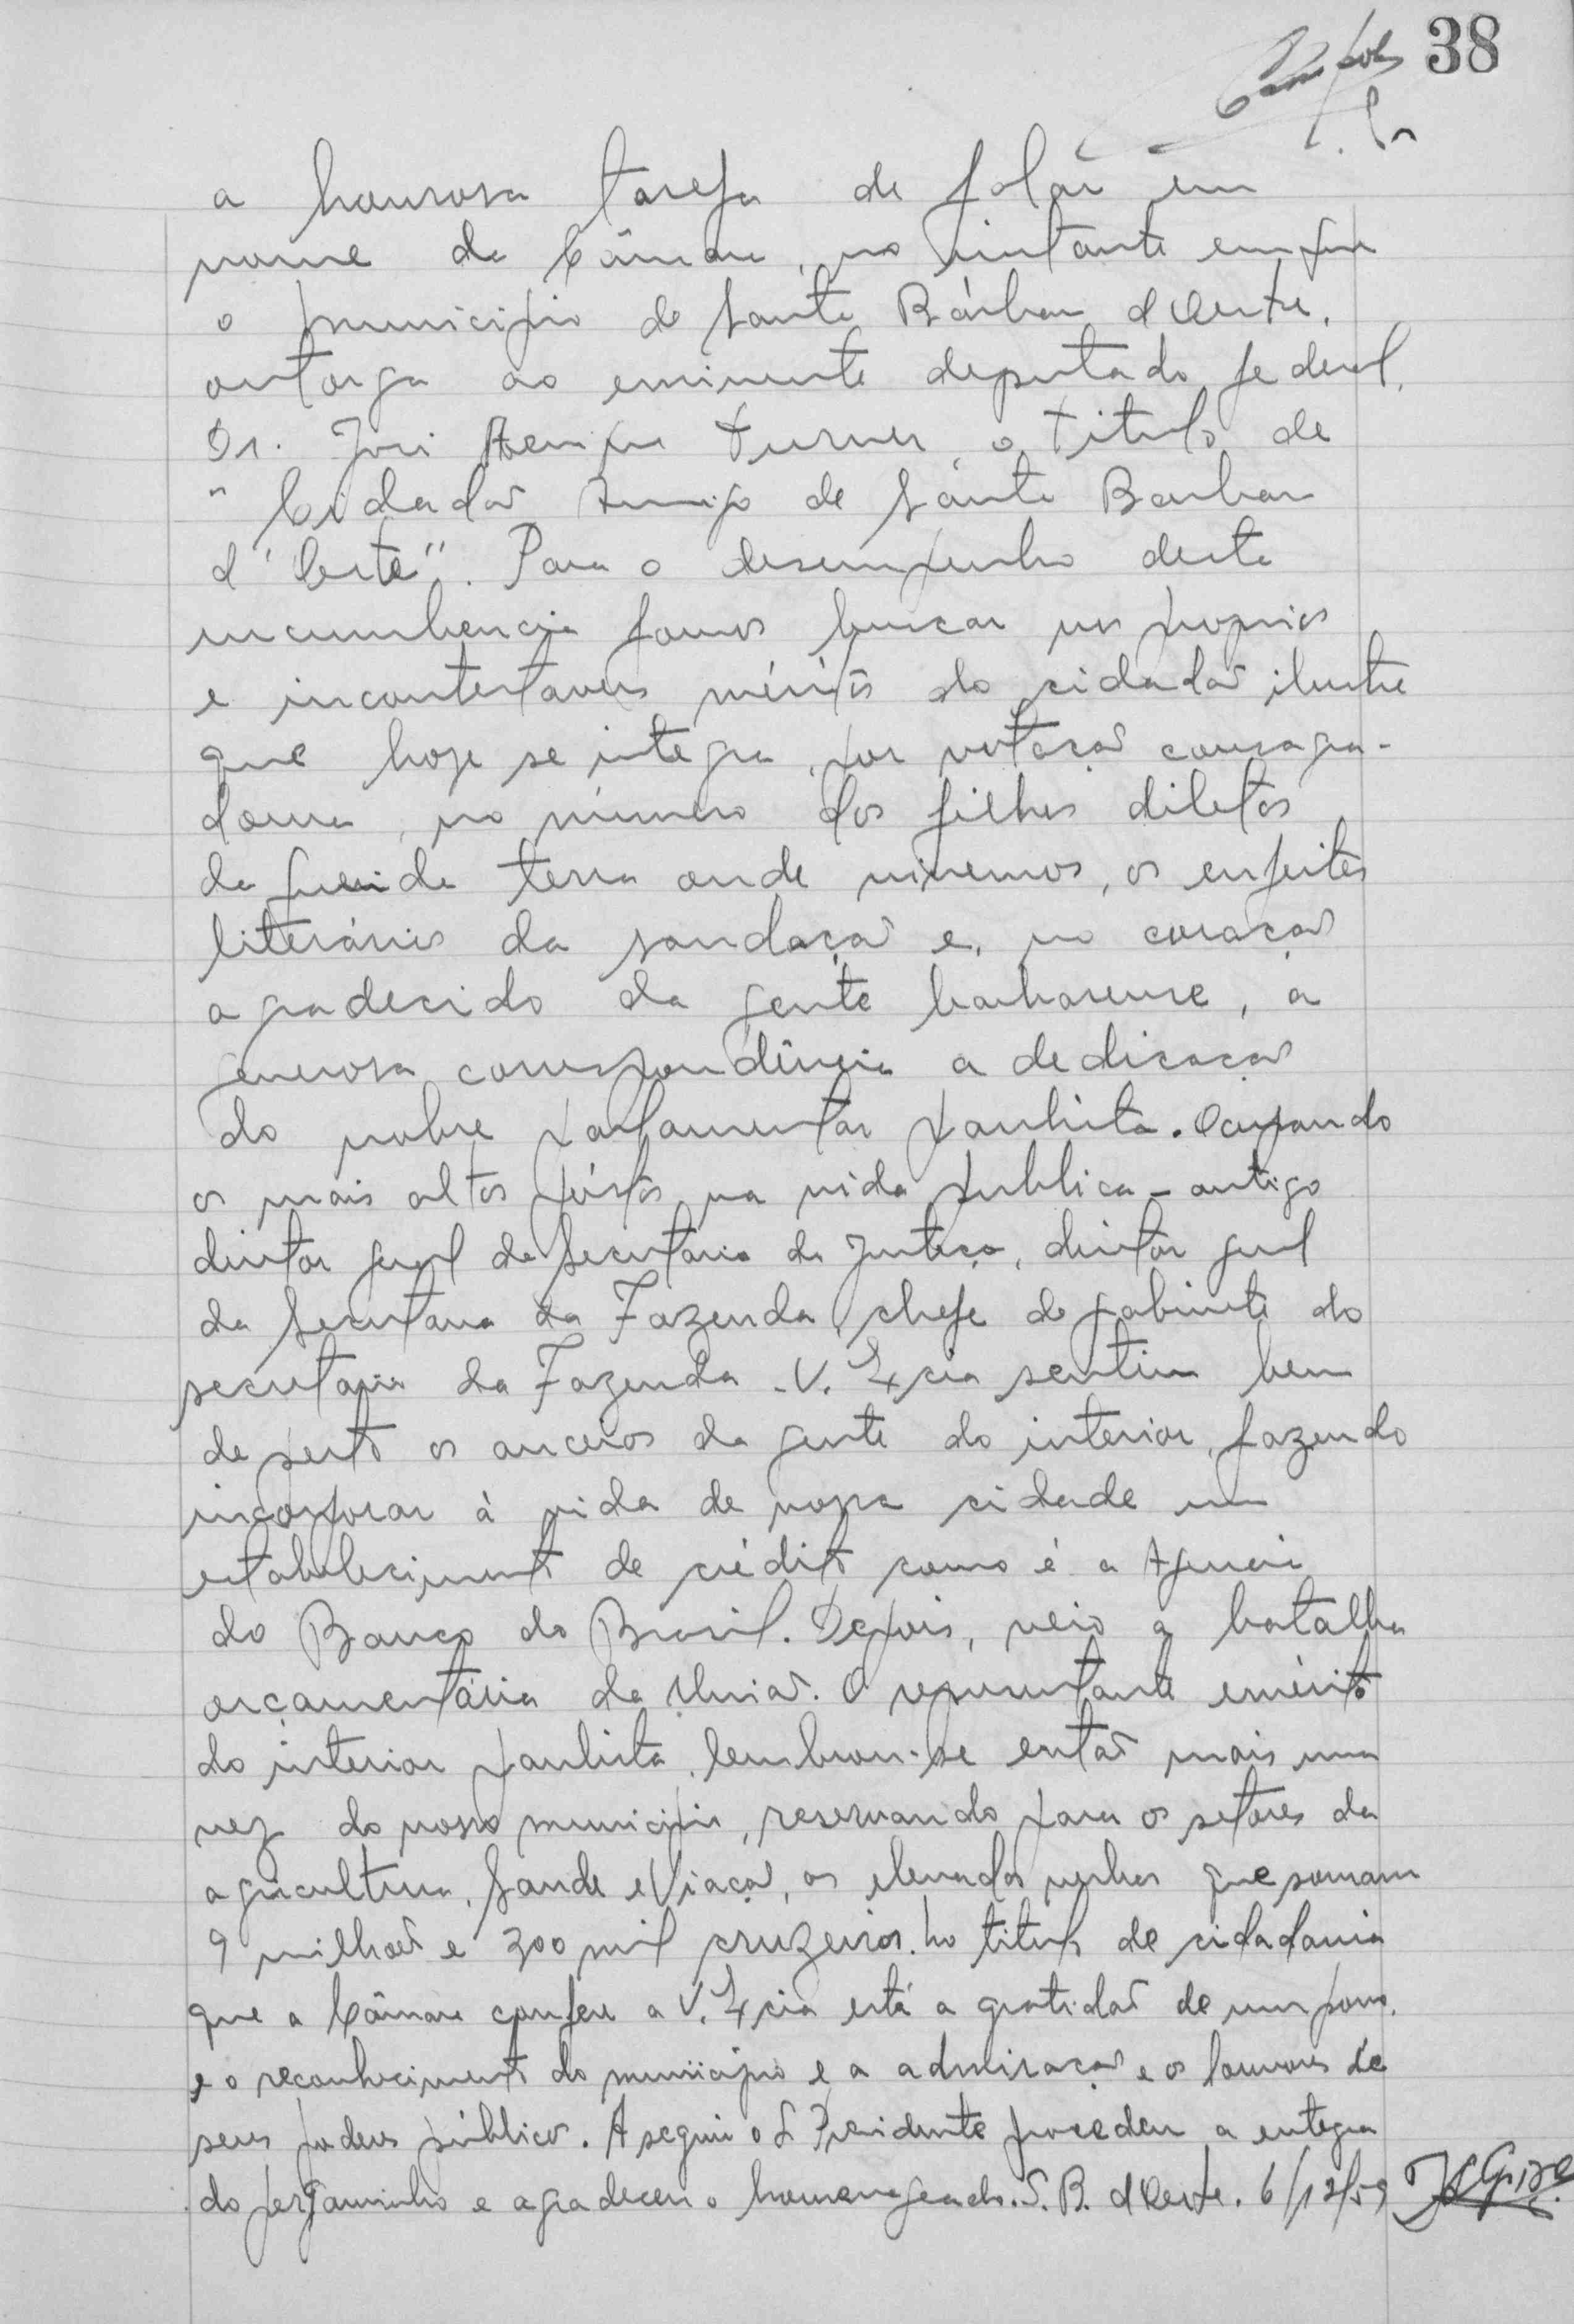 38
a honrosa tarefa de falar em
nome da Câmara, no instante em que
o municipio de Santa Bárbara d'Oeste,
outorga ao eminente deputado federal,
Dr. José Henrique Turner, o titulo de
"Cidadão Amigo de Santa Barbara
d'Oeste". Para o desempenho desta
incumbencia fomos buscar nos proprios
e incontestaveis méritos do cidadão ilustre
que hoje se integra, por votação consagra-
dora, no número dos filhos diletos
da querida terra onde vivemos, os enfeites
literários da saudação e, no coração
agradecido da gente barbarense, a
generosa correspondência a dedicação
do nobre parlamentar paulista. Ocupando
os mais altos póstos na vida publica - antigo
diretor geral da Secretaria da Justiça, diretor geral
da Secretaria da Fazenda, chefe de gabinete do
secretario da Fazenda - V. Excia sentiu bem
de perto os anceios da gente do interior, fazendo
incorporar à vida de nossa cidade um
estabelecimento de crédito como é a Agencia
do Banco do Brasil. Depois, veio a batalha
orçamentária da União. O representante emérito
do interior paulista, lembrou-se então mais uma
vez do nosso municipio, reservando para os setores da
agricultura, Saude e Viação, as elevadas verbas que somam
9 milhões e 300 mil cruzeiros. No titulo de cidadania
que a Câmara confere a V. Excia está a gratidão de um povo,
e o reconhecimento do municipio e a admiração e os louvores de
seus poderes públicos. A seguir o S. Presidente procedeu a entrega
do pergaminho e agradeceu o homenageado. S. B. d'Oeste. 6/12/59